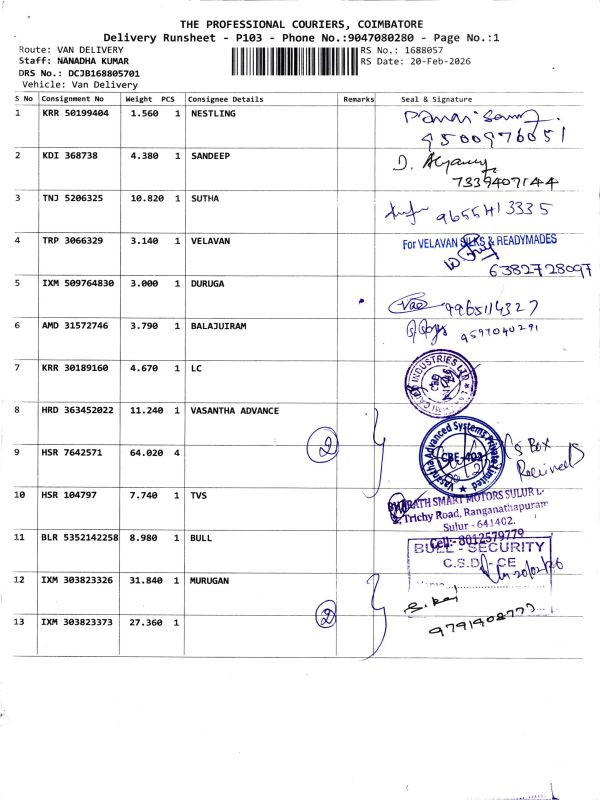 THE PROFESSIONAL COURIERS, COIMBATORE
Delivery Runsheet - P103 - Phone No.:9047080280 - Page No.:1
Route: VAN DELIVERY
Staff: NANADHA KUMAR
DRS No.: DCJB168805701
Vehicle: Van Delivery
RS No.: 1688057
RS Date: 20-Feb-2026
S No Consignment No Weight PCS Consignee Details Remarks Seal & Signature
1 KRR 50199404 1.560 1 NESTLING
9500976051
2 KDI 368738 4.380 1 SANDEEP
7339407144
3 TNJ 5206325 10.820 1 SUTHA
9655413335
4 TRP 3066329 3.140 1 VELAVAN
For VELAVAN SILKS & READYMADES
6382728097
5 IXM 509764830 3.000 1 DURUGA
9965114327
6 AMD 31572746 3.790 1 BALAJUIRAM
9597040291
7 KRR 30189160 4.670 1 LC
INDUSTRIES LTD
8 HRD 363452022 11.240 1 VASANTHA ADVANCE
2
Vasantha Advanced Systems Private Limited
CBE-402
5 Box
Received
9 HSR 7642571 64.020 4
10 HSR 104797 7.740 1 TVS
BHARATH SMART MOTORS SULUR
Trichy Road, Ranganathapuram
Sulur - 641402.
Cell:- 8012579779
11 BLR 5352142258 8.980 1 BULL
BULL - SECURITY
C.S.D - CE
20/02/26
12 IXM 303823326 31.840 1 MURUGAN
2
13 IXM 303823373 27.360 1